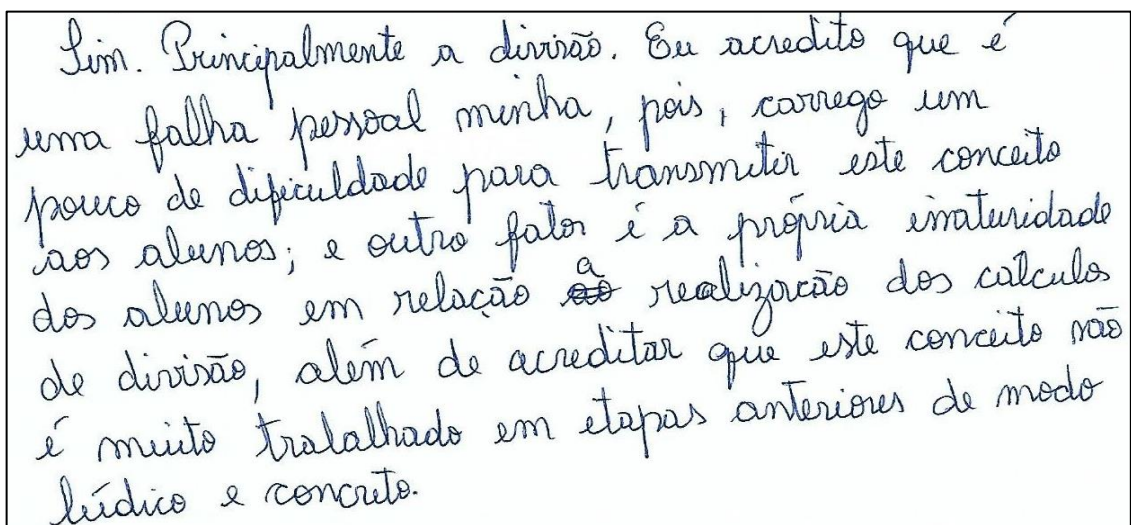 Sim. Principalmente a divisão. Eu acredito que é
uma falha pessoal minha, pois, carrego um
pouco de dificuldade para transmitir este conceito
aos alunos; e outro fator é a própria imaturidade
dos alunos em relação a realização dos cálculos
de divisão, além de acreditar que este conceito não
é muito trabalhado em etapas anteriores de modo
lúdico e concreto.